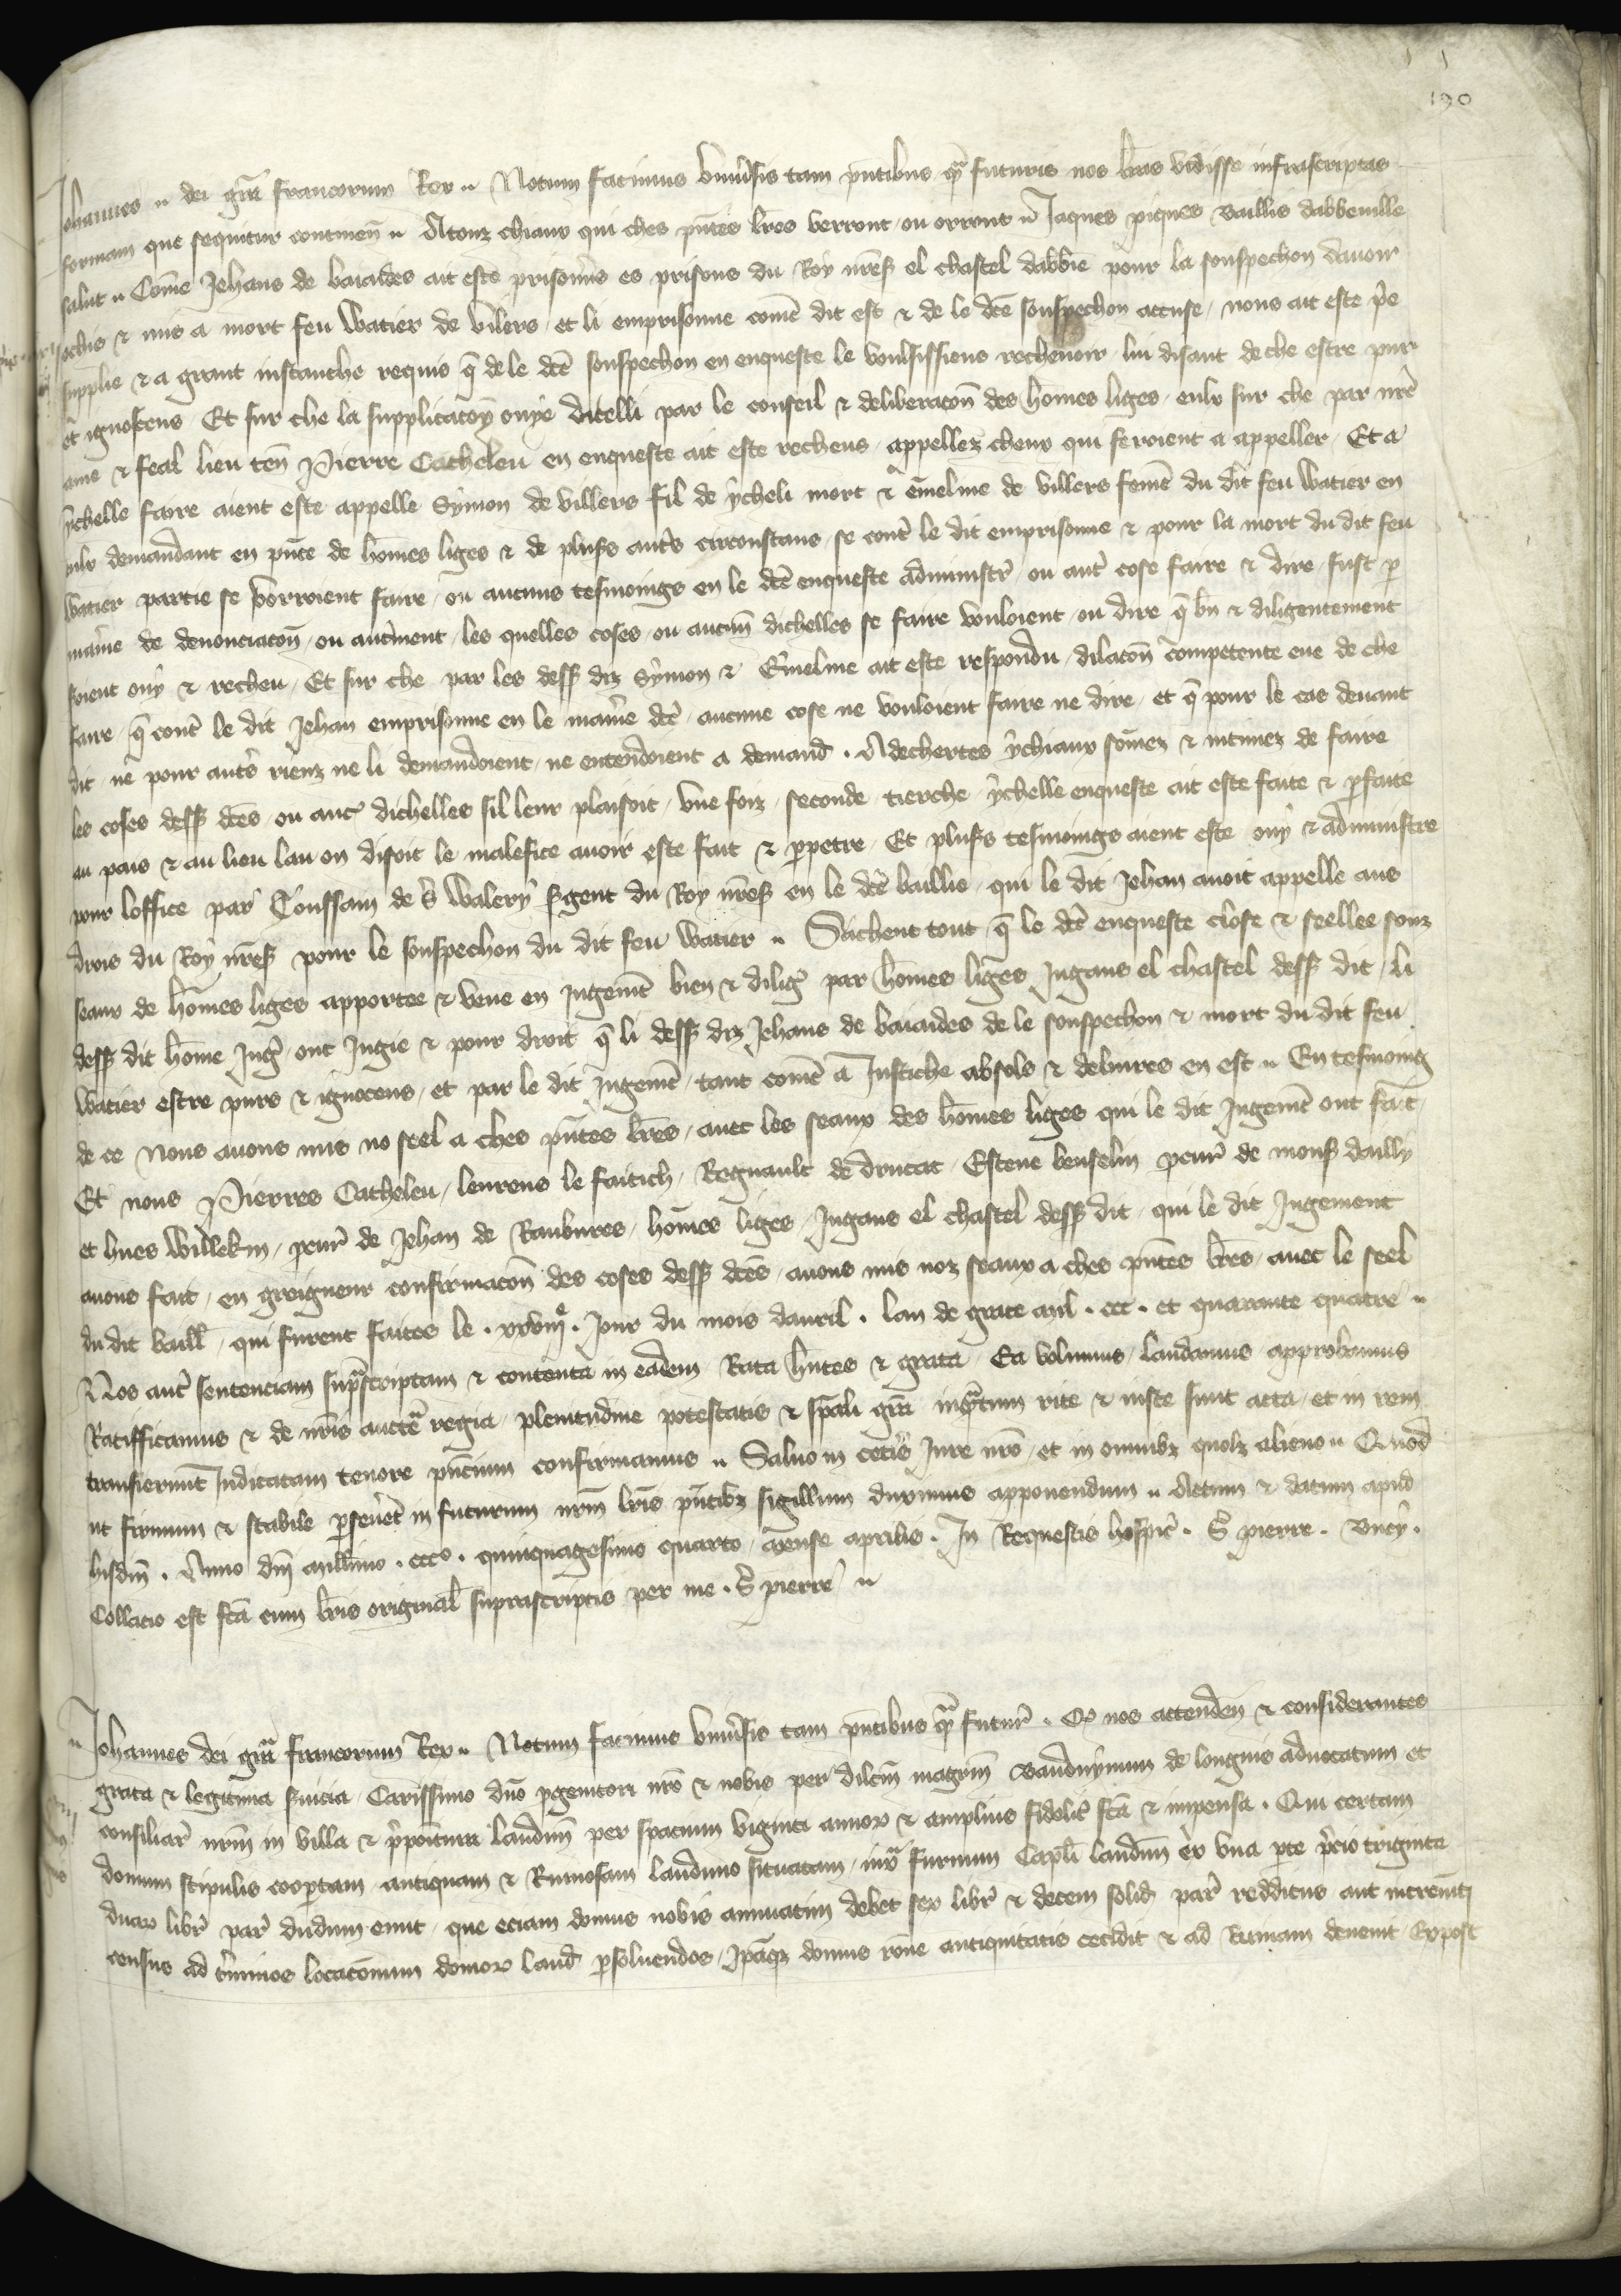 190
Johannes dei gr̃a francorum Rex Notum facimus vniu̾sis tam pñtibus q̃ futuris nos l̃ras vidisse infrascriptas
formam que sequitur continen̄ Atouz chiaux qui ches pñtes l̃res verront ou orront Jaques piques baillis dabbeuille
salut Com̄e Jehans de baiardes ait este prisonn̾s es prisons du Roy nr̃es̾ el chastel dabb̄ie pour la souspechon dauoir
ochis & mis a mort feu Watier de vilers et li emprisonne com̄t dit est & de le dc̃e souspechon accuse nous ait este
supplie & a grant instanche requis q̃ de le dc̃e souspechon en enqueste le voulsissiens rechenoir lui disant de che estre pur
et ignoscens Et sur che la supplicacōn ouye dicelli par le conseil & deliberacōn des hom̄es liges eulx sur che par nr̃e
ame & feal lieu ten̄ Pierre Catheleu en enqueste ait este recheus appellez cheux qui feroient a appeller Et a
ychelle faire aient este appelle Symon de villers fil de ycheli mort & em̄eline de villers fem̄e du dit feu Watier en
eulx demandant en pñce de hom̄es liges & de plus̾s aut̾s circonstans se cont̾ le dit emprisonne & pour la mort du dit feu
Watier partie se vorroient faire ou aucuns tesmoings en le dc̃e enqueste administr̾ ou aut̾ cose faire & dire fust p̱
man̾ie de denonciacōn ou aut̾ment les quelles coses ou aucun̄ dichelles se faire vouloient ou dire q̃ bn̄ & diligentement
soient ouy & recheu Et sur che par les dess̾ diz Symon & Em̄eline ait este respondu dilacōn competente eue de che
faire q̃ cont̾ le dit Jehan emprisonne en le man̾ie dc̃e aucune cose ne vouloient faire ne dire et q̃ pour le cas deuant
dit ne pour aut̾s rienz ne li demandoient ne entendoient a demand̾ . Adechertes ychiaux som̄ez & intimez de faire
les coses dess̾ dc̃es ou auc̾ dichelles sil leur plaisoit vne foiz seconde tierche ychelle enqueste ait este faite & p̱faite
au pais & au lieu lau on disoit le malefice auoir este fait & p̱petre Et plus̾s tesmoings aient este ouy & administre
pour loffice par Toussain de S̾ Walery S̾gent du Roy nr̃es̾ en le dc̃e baillie qui le dit Jehan auoit appelle aus
drois du Roy nr̃es̾ pour le souspechon du dit feu Watier Sachent tout q̃ le dc̃e enqueste close & seellee souz
seaux de hom̄es liges apportee & veue en jugem̄t bien & dilig̾ par hom̄es liges Jugans el chastel dess̾ dit li
dess̾ dit hom̄e Jug̾ ont Jugie & pour droit q̃ li dess̾ diz Jehans de baiardes de le souspechon & mort du dit feu
Watier estre purs & ignocens et par le dit Jugem̄t tant com̄t a Justiche absols & deliures en est En tesmoing
de ce Nous auons mis no seel a ches pñtes l̃res auec les seaux des hom̄es liges qui le dit Jugem̄t ont fait
Et nous Pierres Catheleu leurens le faitich Regnault de drucat Estene benselin pcur̾ de mons̾ dailly
et hues Willekin pcur̾ de Jehan de Rambures hom̄es liges Jugans el chastel dess̾ dit qui le dit Jugement
auons fait en greigneur confirmacōn des coses dess̾ dc̃es auons mis noz seaux a ches pñtes l̃res auec le seel
du dit baill̾ qui furent faites le . xxviijᵉ . Jour du mois dauril . lan de grace mil . ccc . et quarante quatre
Nos aut̾ sentenciam sup̃scriptam & contenta in eadem Rata hñtes & grata Ea volumus laudamus approbamus
Ratifficamus & de nr̃is auctẽ regia plenitudine potestatis & sp̄ali gr̃a inq̃ntum rite & iuste sunt acta et in rem
transierunt Judicatam tenore pñcium confirmamus Saluo in cet̾is Jure nr̃o et in omnibz quolz alieno Quod
ut firmum & stabile p̱seuer̾et in futurum nr̃m l̃ris pñtibz sigillum duximus apponendum Actum & datum apud
hisdin̄ . Anno dn̄i mill̄imo . cccº . quinquagesimo quarto mense aprilis . In Requestis hospic̾ . S̾ pierre . Vncy .
Collacio est fc̃a cum l̃ris original̾ suprascriptis per me . S̾ pierre
Johannes dei gr̃a francorum Rex Notum facimus vniu̾sis tam pñtibus q̃ futur̾ . Q nos attenden̄ & considerantes
grata & legitima s̾uicia Carissimo dn̄o p̱genitori nr̃o & nobis per dilc̃m magr̃m Bauduynum de longuis aduocatum et
consiliar̾ nr̃m in villa & p̾positura laudun̄ per spacium viginti annoꝝ & amplius fidelit̾ fc̃a & impensa . Qui certam
domum stipulis coop̱tam antiquam & Ruinosam lauduno situatam iux̃ furnum Capl̄i laudun̄ ex vna p̱te p̾cio triginta
duaꝝ libr̾ par̾ dudum emit que eciam domus nobis annuatim debet sex libr̾ & decem solid̾ par̾ redditus aut increm̄ti
census ad t̾minos locacōnum domoꝝ laud̾ p̱soluendos Jp̄aqz domus rōne antiquitatis cecidit & ad Ruinam deuenit Expost